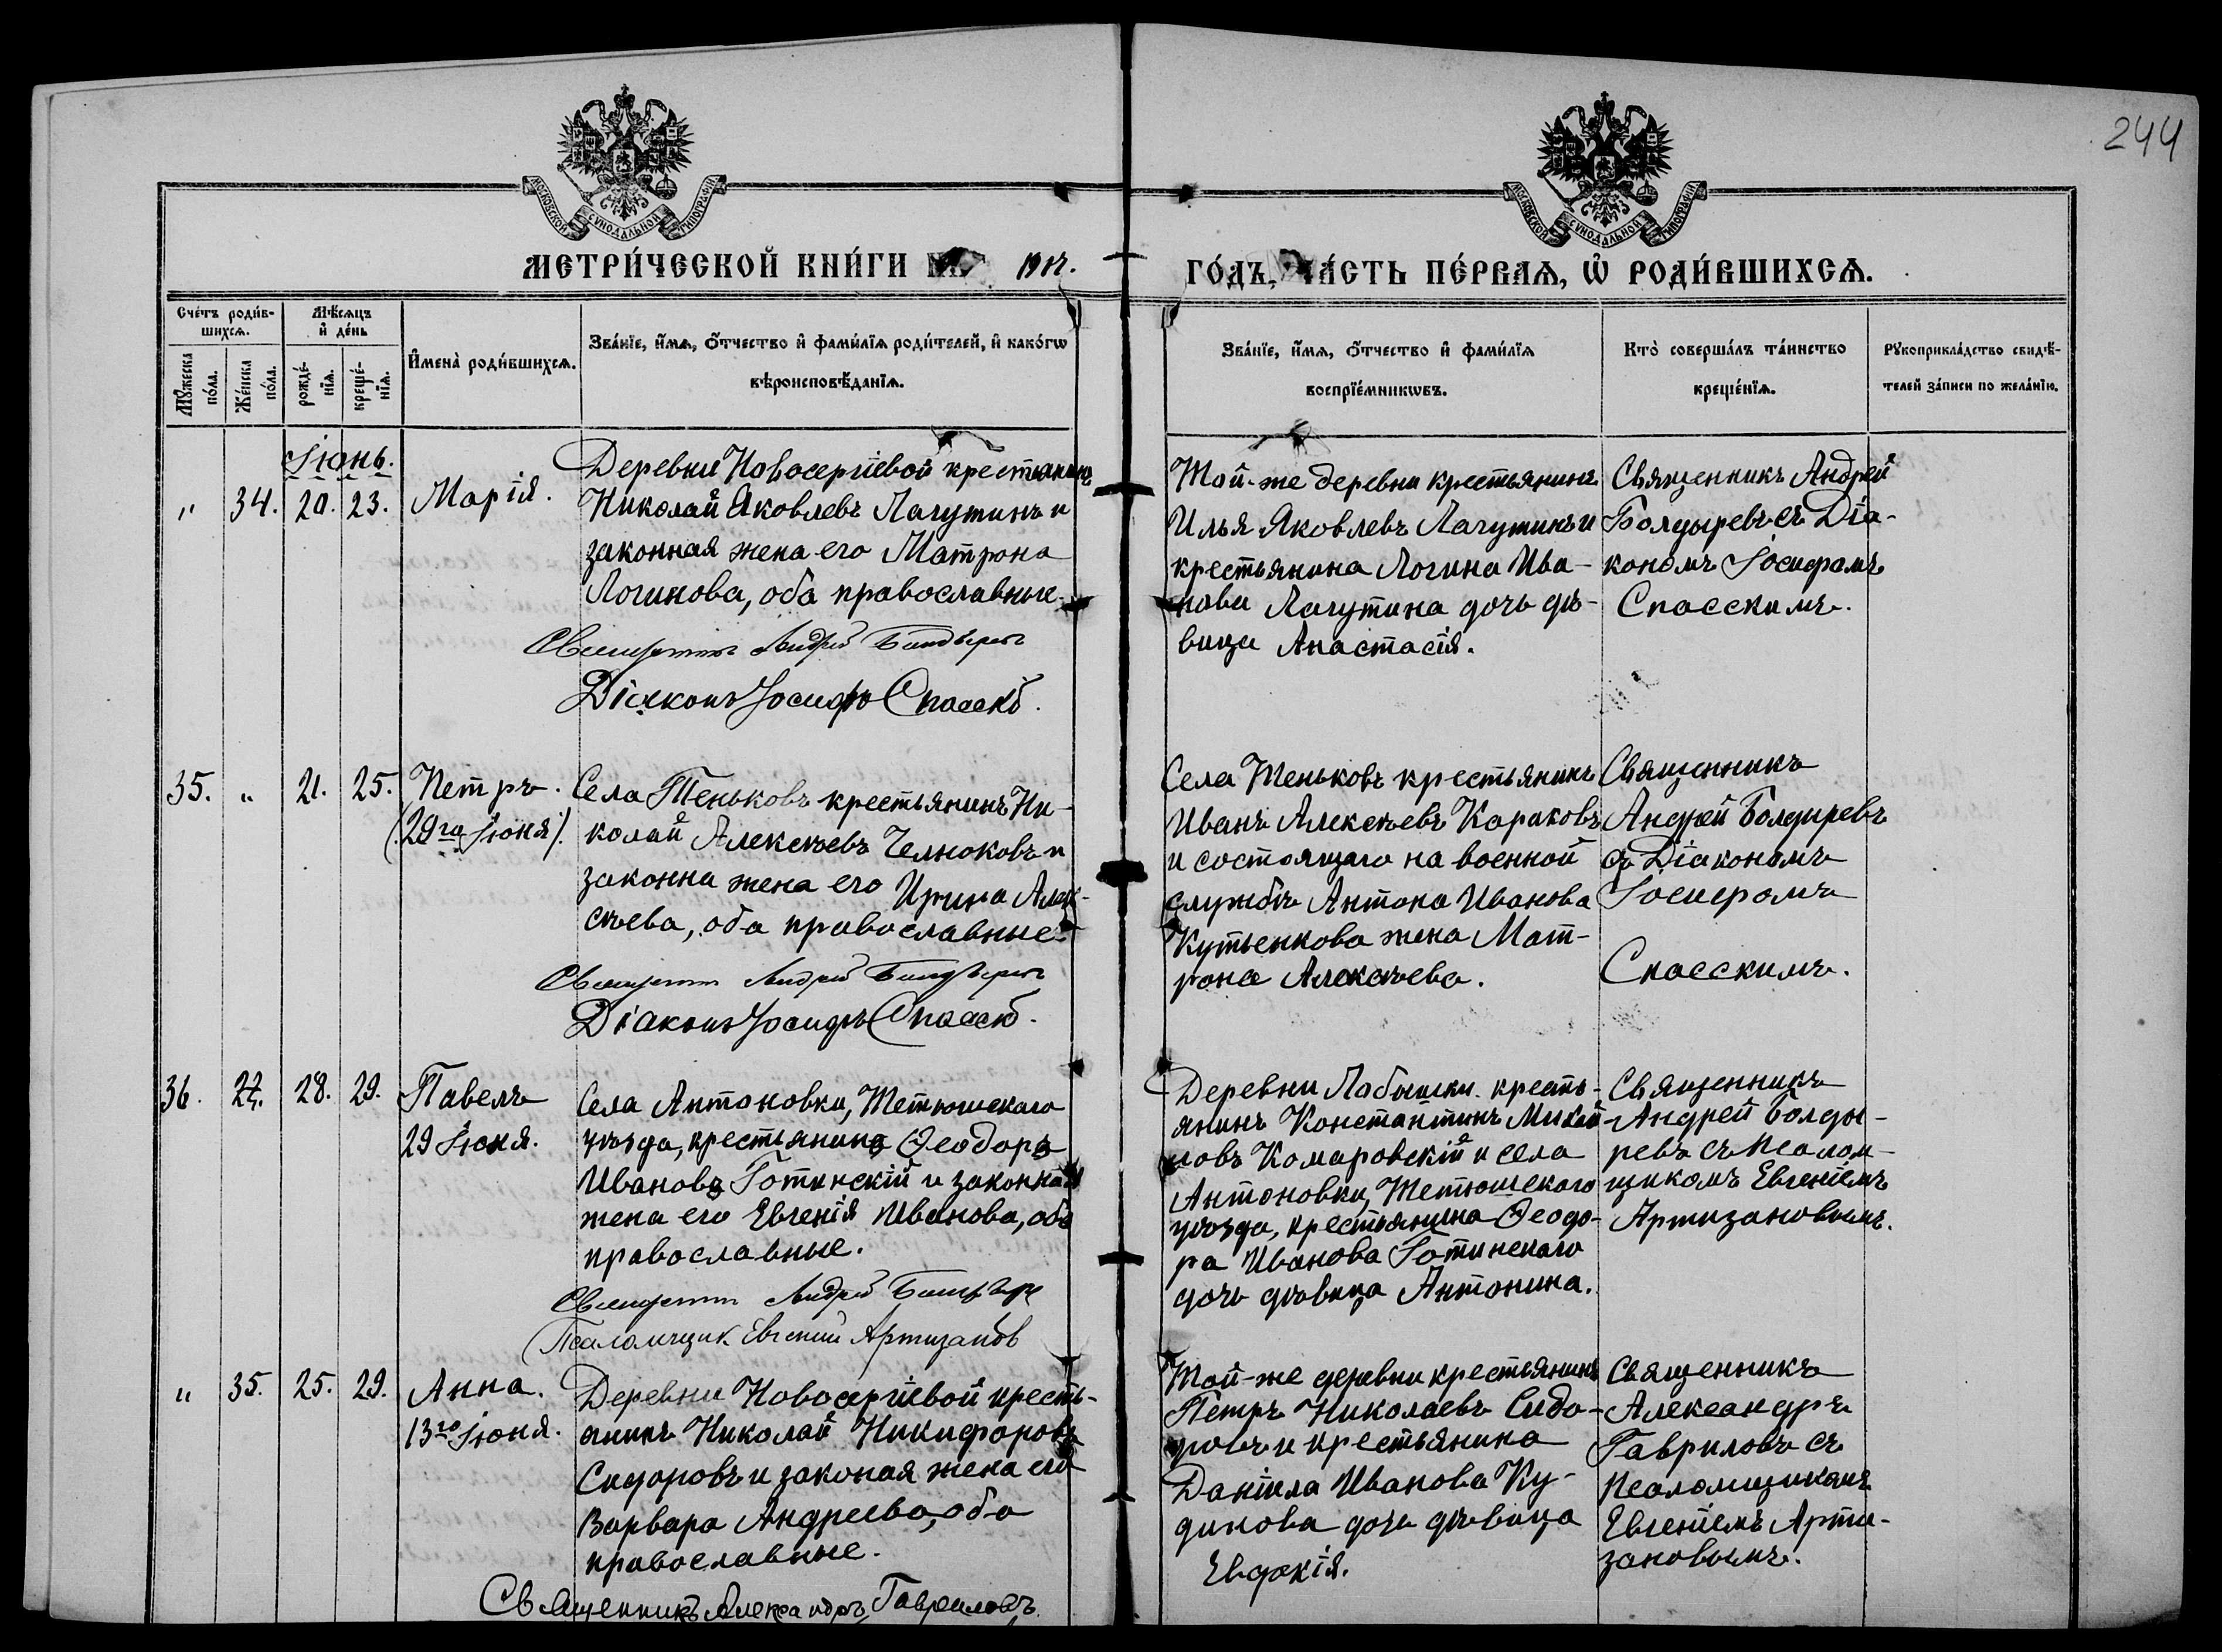 244
МОСКОВСКОЙ СѴНОДАЛЬНОЙ ТИПОГРАФІИ
МОСКОВСКОЙ СѴНОДАЛЬНОЙ ТИПОГРАФІИ
МЕТРИ́ЧЕСКОЙ КНИ́ГИ НА 1912.
ГО́ДЪ, ЧА́СТЬ ПЕ́РВАЯ, Ѡ РОДИ́ВШИХСЯ.
Сче́тъ роди́в-
шихся.
Мѣ́сяцъ
и де́нь
Му́жеска
по́ла.
Же́нска
по́ла.
рожде́-
нїя.
креще́-
нїя.
Имена̀ роди́вшихся.
Зва́нїе, и́мя, о́тчество и фами́лїя роди́телей, и како́гѡ
вѣроисповѣ́данїя.
Зва́нїе, и́мя, о́тчество и фами́лїя
воспрїе́мникѡвъ.
Кто̀ соверша́лъ та́инство
креще́нїя.
Рукоприкла́дство свидѣ́-
телей за́писи по жела́нїю.
Іюнь.
" 34. 20. 23. Марія.
Деревни Новосергіевой крестьянинъ
Николай Яковлевъ Лагутинъ и
законная жена его Матрона
Логинова, оба православные.
Священникъ Андрей Болдыревъ
Діаконъ Іосифъ Спасскій.
Той-же деревни крестьянинъ
Илья Яковлевъ Лагутинъ и
крестьянина Логина Ива-
нова Лагутина дочь дѣ-
вица Анастасія.
Священникъ Андрей
Болдыревъ съ Діа-
кономъ Іосифомъ
Спасскимъ.
35. " 21. 25. Петръ.
(29го Іюня).
Села Теньковъ крестьянинъ Ни-
колай Алексѣевъ Челноковъ и
законна жена его Ирина Алек-
сѣева, оба православные.
Священникъ Андрей Болдыревъ
Діаконъ Іосифъ Спасскій.
Села Теньковъ крестьянинъ
Иванъ Алексѣевъ Караковъ
и состоящаго на военной
службѣ Антона Иванова
Кутьенкова жена Мат-
рона Алексѣева.
Священникъ
Андрей Болдыревъ
съ Діакономъ
Іосифомъ
Спасскимъ.
36. 28. 29. Павелъ
29 Іюня.
Села Антоновки, Тетюшскаго
уѣзда, крестьянинъ Ѳеодоръ
Ивановъ Готинскій и законная
жена его Евгенія Иванова, оба
православные.
Священникъ Андрей Болдыревъ
Псаломщик Евгений Артизанов
Деревни Лабышки кресть-
янинъ Константинъ Михай-
ловъ Комаровскій и села
Антоновки, Тетюшскаго
уѣзда, крестьянина Ѳеодо-
ра Иванова Готинскаго
дочь дѣвица Антонина.
Священникъ
Андрей Болды-
ревъ съ Псалом-
щикомъ Евгеніемъ
Артизановымъ.
" 35. 25. 29. Анна.
13го Іюня.
Деревни Новосергіевой кресть-
янинъ Николай Никифоровъ
Сидоровъ и законая жена его
Варвара Андреева, оба
православные.
Священникъ Александръ Гавриловъ
Той-же деревни крестьянинъ
Петръ Николаевъ Сидо-
ровъ и крестьянина
Даніила Иванова Ку-
динова дочь дѣвица
Евдокія.
Священникъ
Александръ
Гавриловъ съ
Псаломщикомъ
Евгеніемъ Арти-
зановымъ.